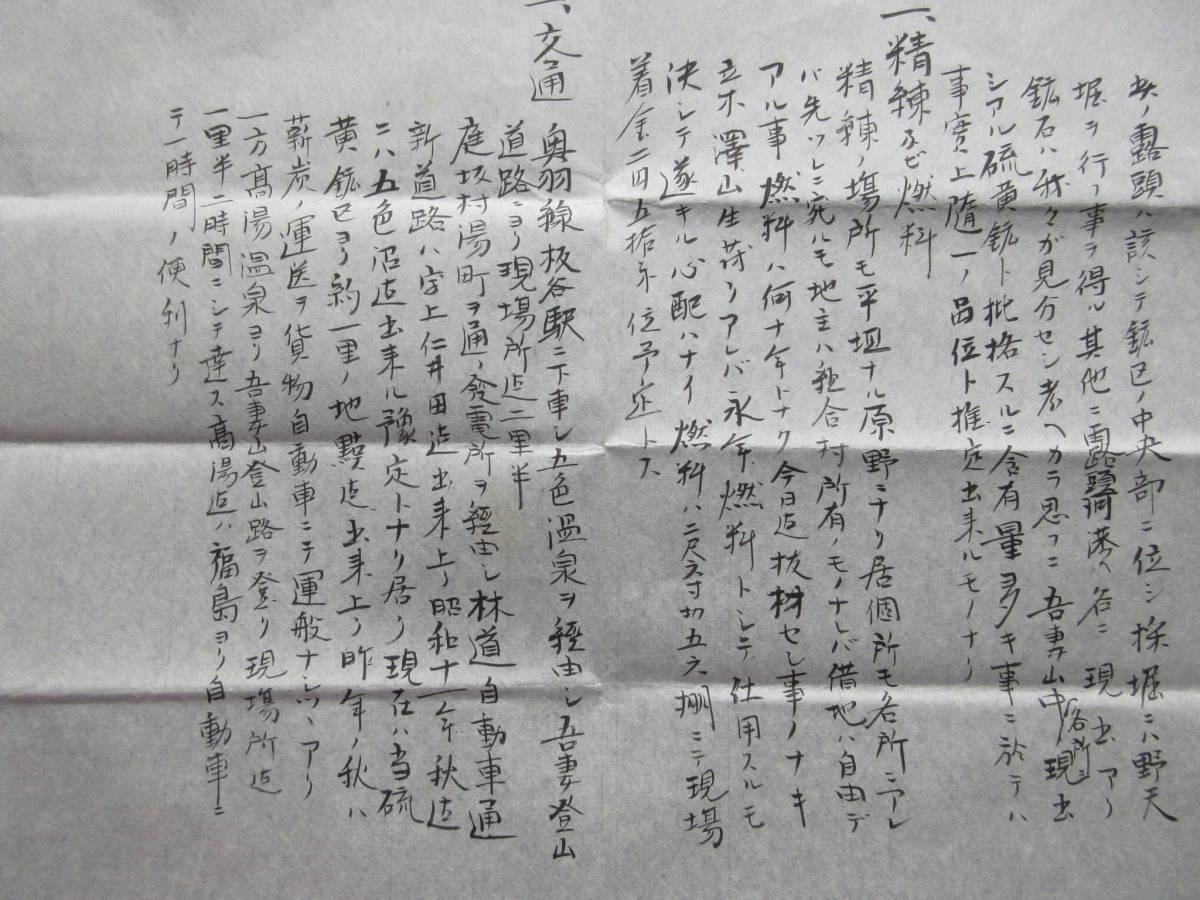 ノ露頭ハ該シテ鉱区ノ中央部ニ位シ採堀ニハ野天
堀ヲ行フ事ヲ得ル其他ニ露頭 名ニ現出アリ
鉱石ハ我々が見分セシ考ヘカラ思フニ吾妻山中各所ニ現出
シアル硫黄鉱ト批格スルニ含有量多キ事ニ於テハ
事實上随一ノ品位ト推定出来ルモノナリ
一、精錬及ビ燃料
精錬ノ場所モ平坦ナル原野ニナリ居個所モ各所ニアレ
バ先ツレニ宛ルモ地主ハ組合村所有ノモノナレバ借地ハ自由デ
アル事燃料ハ何十年トナク今日迠抜材セシ事ノナキ
立木澤山生茂リアレバ永年燃料トシテ仕用スルモ
決シテ遂キル心配ハナイ燃料ハ二尺 寸切五尺棚ニテ現場
着金二四五拾銭位予定トス
一、交通
奥羽線板谷駅ニ下車シ五色温泉ヲ経由シ吾妻登山
道路ニヨリ現場所迠二里半
庭坂村湯町ヲ通リ発電所ヲ経由シ林道自動車通
新道路ハ字上仁井田迠出来上リ昭和十一年秋迠
ニハ五色沼迠出来ル豫定トナリ居リ現在ハ当硫
黄鉱区ヨリ約一里ノ地點迠出来上リ昨年ノ秋ハ
薪炭ノ運送ヲ貨物自動車ニテ運般ナシツヽアリ
一方高湯温泉ヨリ吾妻山登山路ヲ登リ現場所迠
一里半二時間ニシテ達ス高湯迠ハ福島ヨリ自動車ニ
テ一時間ノ便利ナリ